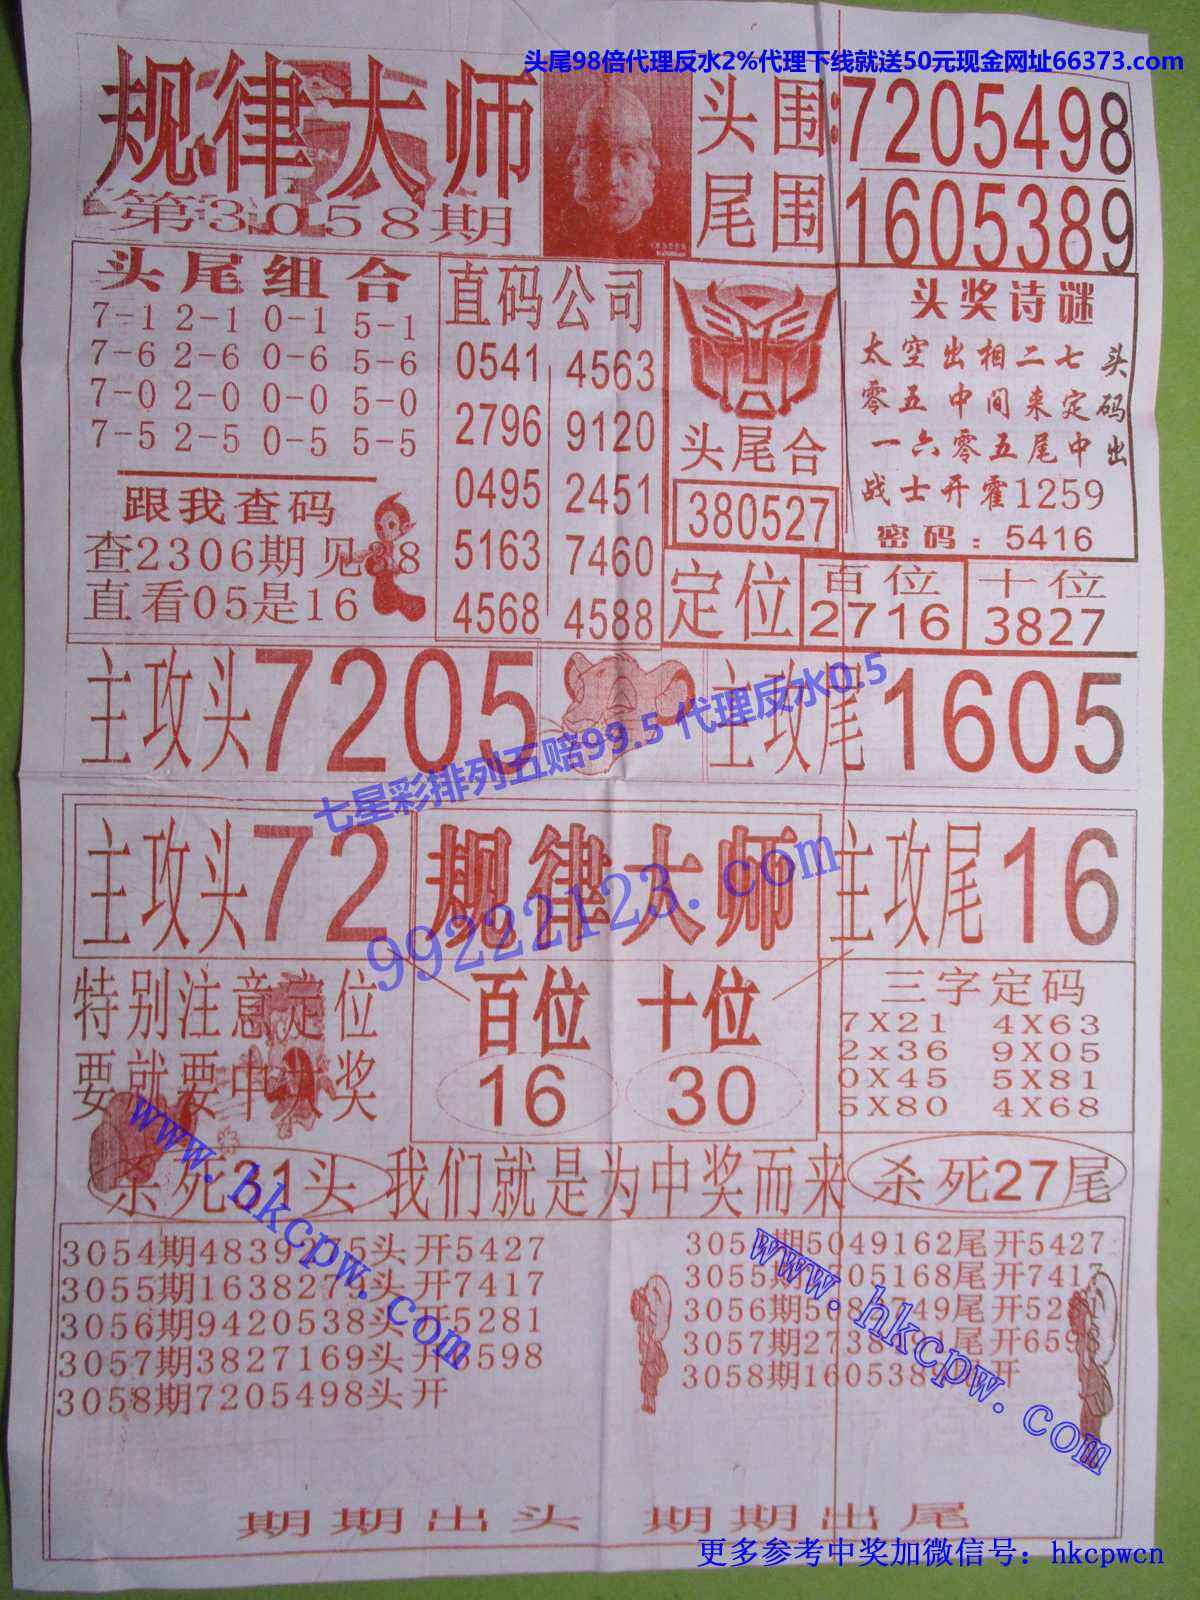 头尾98倍代理反水2%代理下线就送50元现金网址66373.com
规律大师
第3058期
头围:7205498
尾围 1605389
头尾组合
7-1 2-1 0-1 5-1
7-6 2-6 0-6 5-6
7-0 2-0 0-0 5-0
7-5 2-5 0-5 5-5
跟我查码
查2306期见38
直看05是16
直码公司
0541 4563
2796 9120
0495 2451
5163 7460
4568 4588
头尾合
380527
头奖诗谜
太空出相二七头
零五中间来定码
一六零五尾中出
战士开霍1259
密码:5416
定位
百位
2716
十位
3827
主攻头7205
主攻尾1605
七星彩排列五赔99.5 代理反水0.5
主攻头72
规律大师
主攻尾16
99222123.com
特别注意定位
要就要中大奖
百位 十位
16 30
三字定码
7X21 4X63
2x36 9X05
0X45 5X81
5X80 4X68
www.hkcpw.com
杀死31头
我们就是为中奖而来
杀死27尾
3054期4839275头开5427
3055期1638279头开7417
3056期9420538头开5281
3057期3827169头开6598
3058期7205498头开
3054期5049162尾开5427
3055期 705168尾开7417
3056期5 8 749尾开52
3057期2738 尾开6598
3058期1605389尾开
www.hkcpw.com
期期出头 期期出尾
更多参考中奖加微信号：hkcpwcn